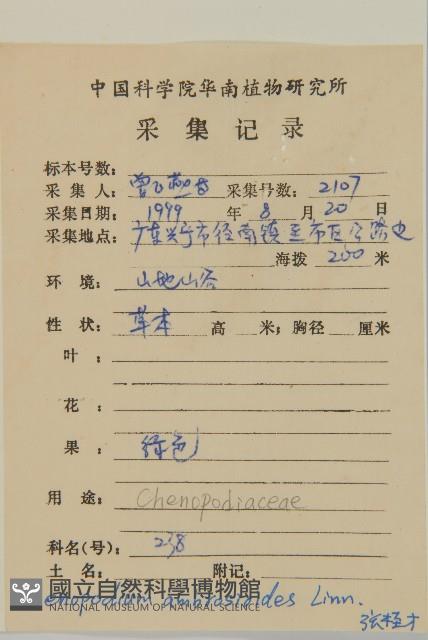 中国科学院华南植物研究所
采集记录
标本号数:
采集人: 曾飞燕 采集号数: 2107
采集日期: 1999 年 8 月 20 日
采集地点: 广东兴宁市径南镇至市区公路边
海拨 200 米
环境: 山地山谷
性状: 草本 高 米; 胸径 厘米
叶:
花:
果: 绿色
用途: Chenopodiaceae
科名(号): 238
土名: 附记:
國立自然科學博物館
NATIONAL MUSEUM OF NATURAL SCIENCE
enopodium ambrosioides Linn.
张桂才